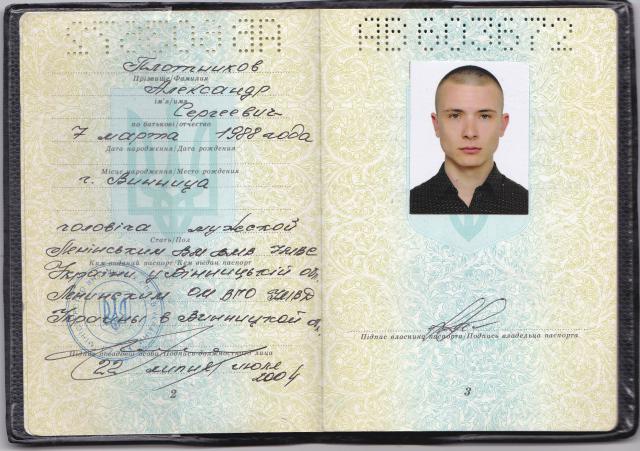 Плотников
Прізвище/Фамилия
Александр
ім'я/имя
Сергеевич
по батькові/отчество
7 марта 1988 года
Дата народження/Дата рождения
Місце народження/Место рождения
г. Винница
мужской
Стать/Пол
Ким виданий паспорт/Кем выдан паспорт
України у Вінницькій
Ленинским
Украины в Винницкой
Підпис посадової особи/Подпись должностного лица
22 липня июля
2004
2
Підпис власника паспорта/Подпись владельца паспорта
3